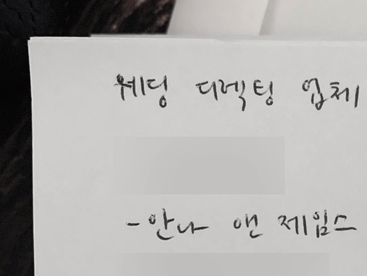 웨딩 디렉팅 업체
-안나 앤 제임스